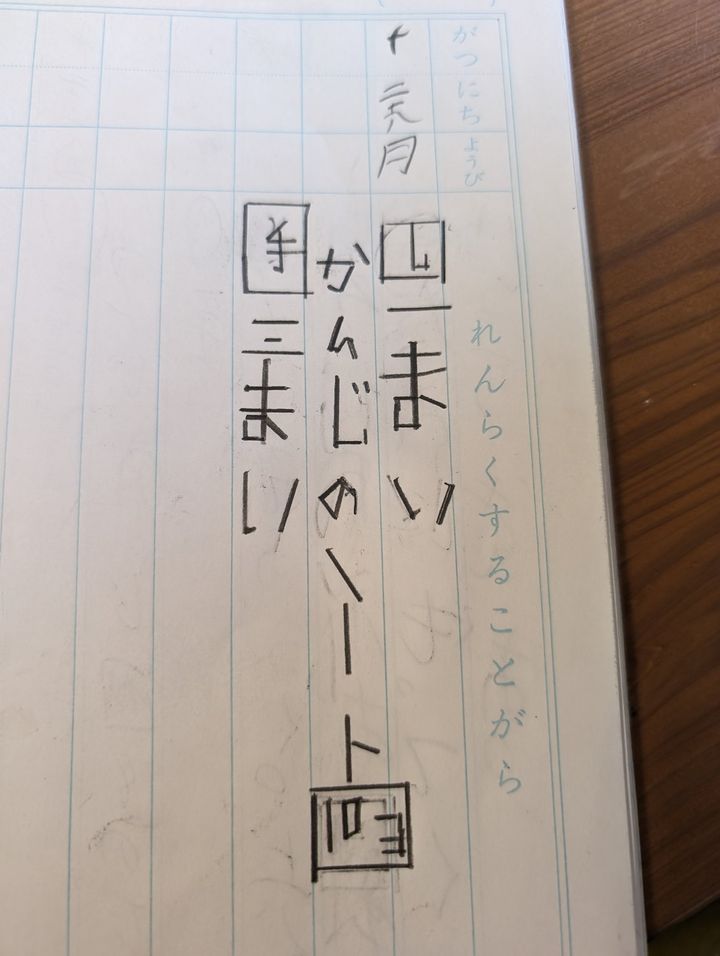 がつにちようび
れんらくすることがら
十 二十八 月
一まい
かんじのノート
手 三まい